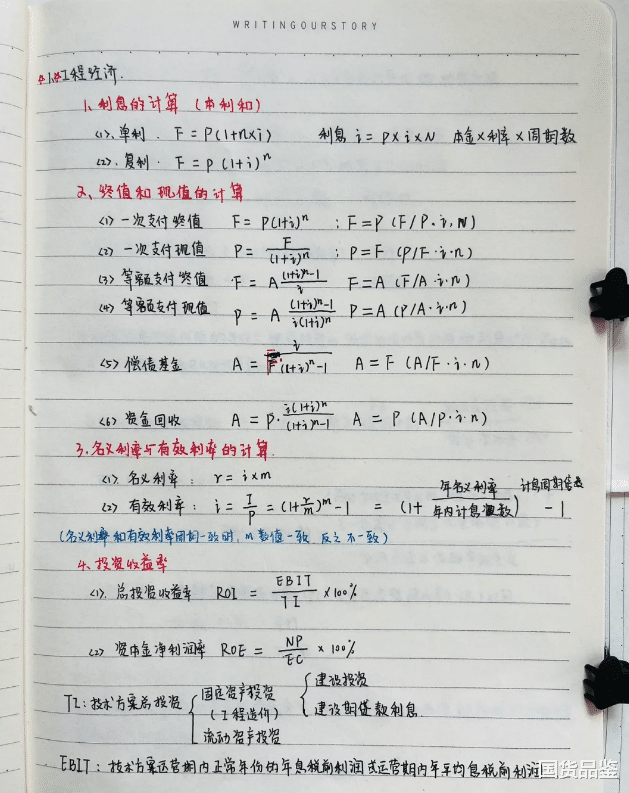 WRITINGOURSTORY
*1.*工程经济.
1、利息的计算 (本利和)
<1>、单利. F = P(1+n×i) 利息 i = P×i×N 本金×利率×周期数
<2>、复利. F = P (1+i)^n
2、终值和现值的计算
<1> 一次支付终值 F = P(1+i)^n ; F = P (F/P.i,N)
<2> 一次支付现值 P = F/(1+i)^n ; P = F (P/F.i.n)
<3> 等额支付终值 F = A (1+i)^n-1/i F = A (F/A.i.n)
<4> 等额支付现值 P = A (1+i)^n-1/i(1+i)^n P = A (P/A.i.n)
<5> 偿债基金 A = F i/(1+i)^n-1 A = F (A/F.i.n)
<6> 资金回收 A = P. i(1+i)^n/(1+i)^n-1 A = P (A/P.i.n)
3、名义利率与有效利率的计算.
<1> 名义利率: r = i×m
<2> 有效利率: i = I/P = (1+r/m)^m -1 = (1+ 年名义利率/年内计息次数) 计息周期 -1
(名义利率和有效利率周期一致时, m数值一致. 反之不一致)
4、投资收益率
<1>. 总投资收益率 ROI = EBIT/TI ×100%
<2> 资本金净利润率 ROE = NP/EC ×100%
TI: 技术方案总投资 { 固定资产投资 (工程造价) { 建设投资
建设期贷款利息.
流动资产投资
EBIT: 技术方案运营期内正常年份的年息税前利润或运营期内年平均息税前利润
国货品鉴